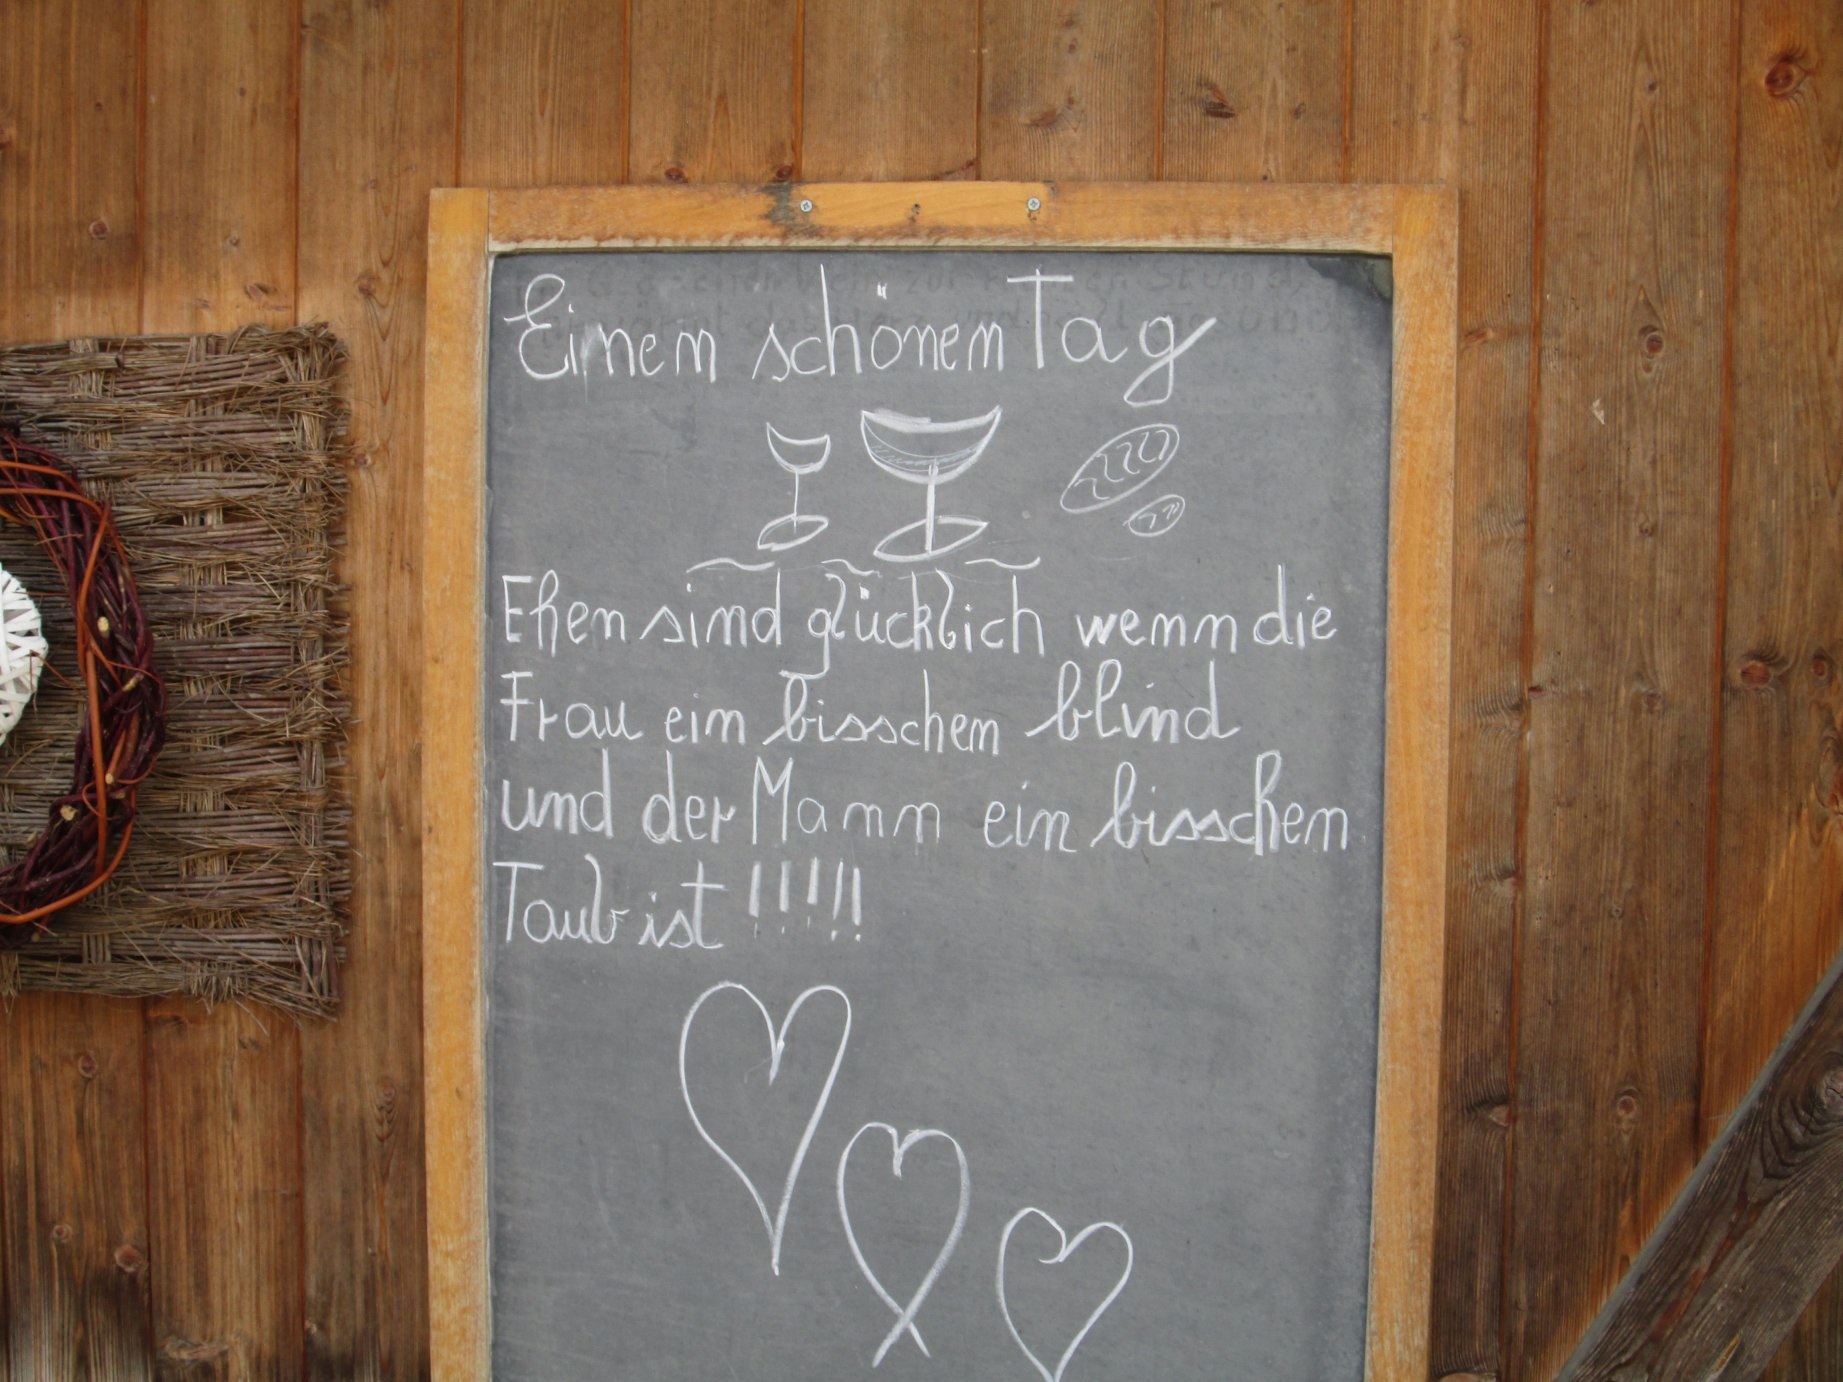 Einen schönen Tag
Ehen sind glücklich wenn die
Frau ein bisschen blind
und der Mann ein bisschen
Taub ist !!!!!